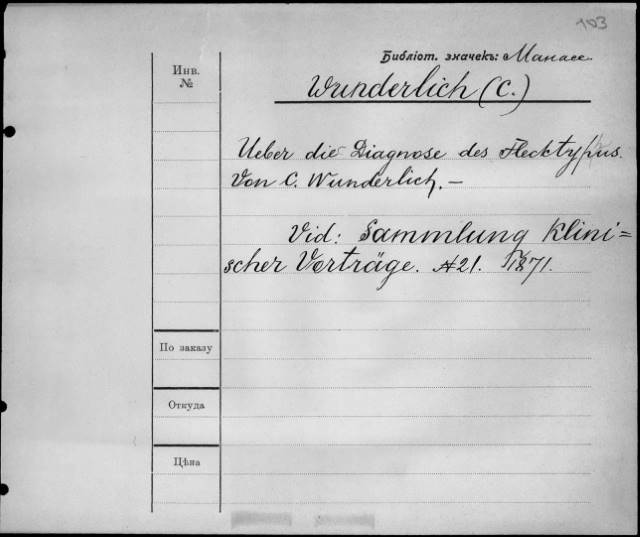 103
Библіот. значекъ: Манасс.
Инв.
№
Wunderlich (C.)
Ueber die Diagnose des Flecktyphus.
Von C. Wunderlich. —
Vid: Sammlung klini=
scher Vorträge. №21. 1871.
По заказу
Откуда
Цѣна